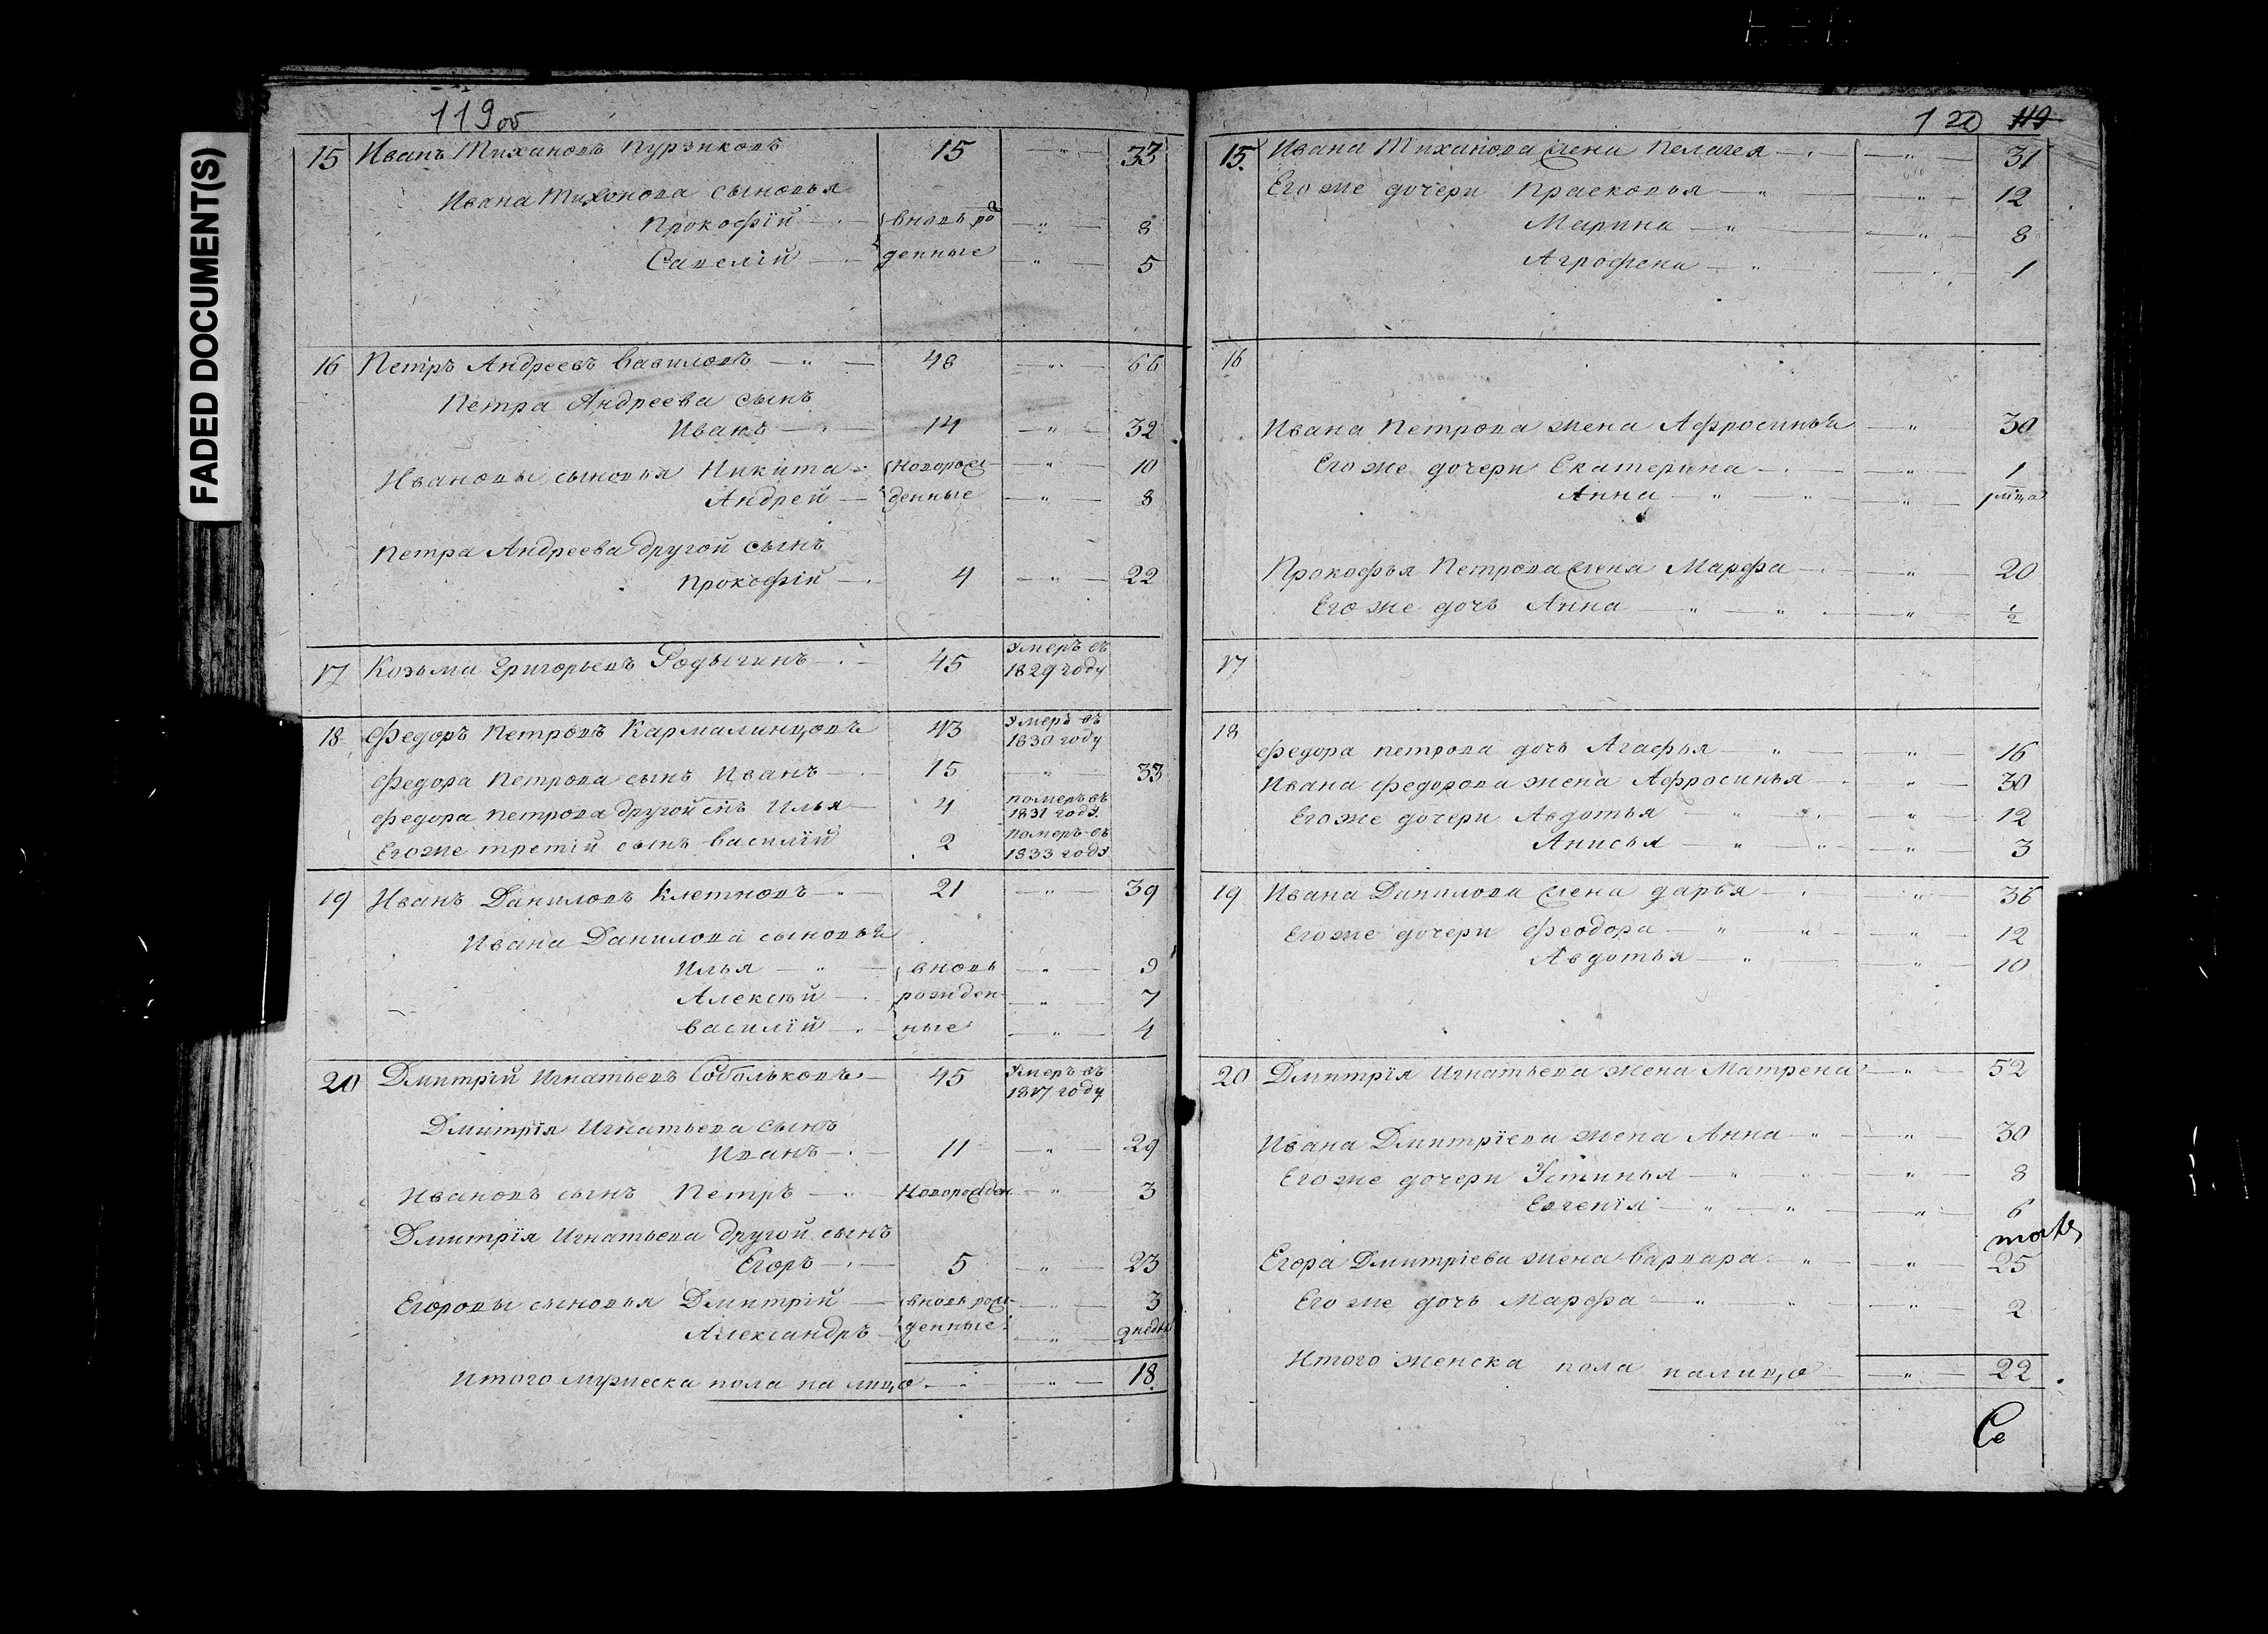 FADED DOCUMENT(S)
119об
15 Иванъ Тихановъ Пурэиковъ 15 — " — 33
Ивана Тихонова сыновья
Прокофїй — вновь ро — " — 8
Савелїй — денные — " — 5
16 Петръ Андреевъ Вавиловъ — " — 48 — " — 66
Петра Андреева сынъ
Иванъ — 14 — " — 32
Ивановы сыновья Никита — новорож — " — 10
Андрей — денные — " — 8
Петра Андреева другой сынъ
Прокофїй — 4 — " — 22
17 Козьма Григорьевъ Родыгинъ — 45 умеръ въ 1829 году
18 Федоръ Петровъ Кармалинцовъ 43 умеръ въ 1830 году
Федора Петрова сынъ Иванъ — 15 — " — 33
Федора Петрова другой снъ Илья — 4 померъ въ 1831 году
Его же третїй сынъ Василїй 2 померъ въ 1833 году
19 Иванъ Даниловъ Клетновъ — " — 21 — " — 39
Ивана Данилова сыновья
Илья — " — вновь — " — 9
Алексѣй — рожден — " — 7
Василїй — ные — " — 4
20 Дмитрїй Игнатьевъ Собольковъ — 45 умеръ въ 1817 году
Дмитрїя Игнатьева сынъ
Иванъ — 11 — " — 29
Ивановъ сынъ Петръ — " новорожден — " — 3
Дмитрїя Игнатьева другой сынъ
Егоръ — 5 — " — 23
Егоровы сыновья Дмитрїй — вновь рож — " — 3
Александръ — денные — " — 2 недѣл
Итого мужеска пола на лицо — " — 18
120 119
15. Ивана Тиханова жена Пелагея — " — 31
Его же дочери Прасковья — " — " — 12
Марина — " — " — 8
Агрофена — " — " — 1
16
Ивана Петрова жена Афросинья — " — 30
Его же дочери Екатерина — " — 1
Анна — " — " — 1 м҃ца
Прокофья Петрова жена Марфа — " — 20
Его же дочь Анна — " — " — " — ½
17
18
Федора Петрова дочь Агафья — " — " — 16
Ивана Федорова жена Афросинья — " — 30
Его же дочери Авдотья — " — " — 12
Анисья — " — " — 3
19 Ивана Данилова жена Дарья — " — 36
Его же дочери Феодора — " — " — 12
Авдотья — " — " — 10
20 Дмитрїя Игнатьева жена Матрена — " — 52
Ивана Дмитрїева жена Анна — " — " — 30
Его же дочери Устинья — " — " — 8
Евгенїя — " — " — 6
Егора Дмитрїева жена Варвара — " — " — 25
Его же дочь Марфа — " — " — " — 2
Итого женска пола на лицо — " — 22
Се